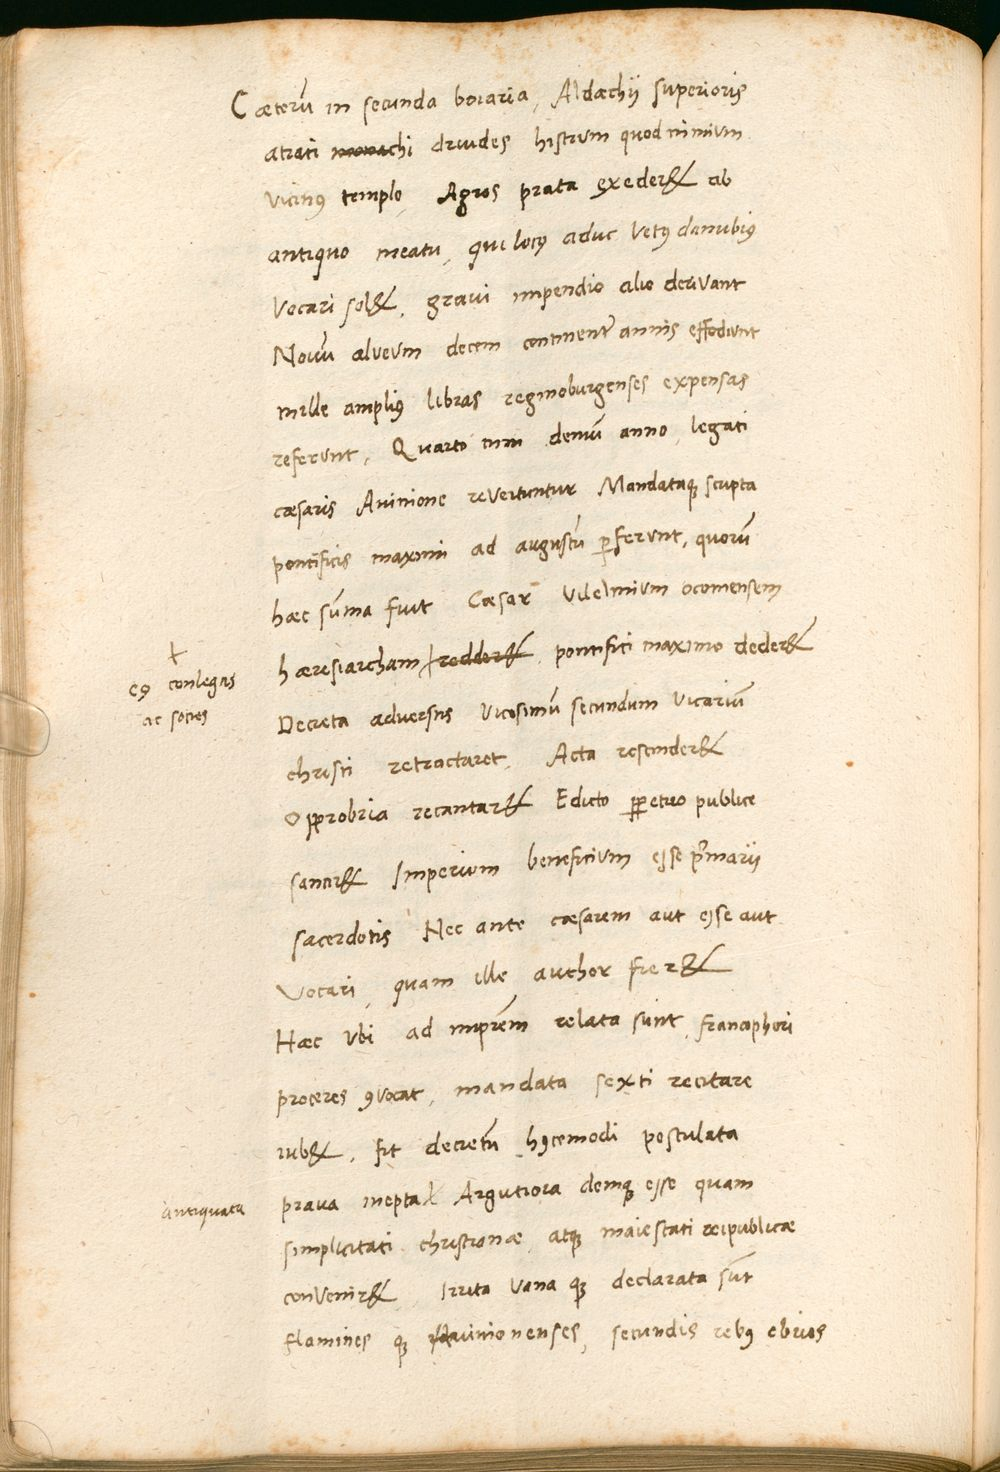 Cæterū in secunda boiaria, Aldæchij superioris
atrati monachi druides histrum quod nimium
vicinꝰ templo, Agros prata exederet ab
antiquo meatu, qui locꝰ aduc vetꝰ danubiꝰ
vocari solet, gravi impendio alio derivant
Novū alveum decem continenter annis effodiunt
mille ampliꝰ libras reginoburgenses expensas
referunt, Quarto tum demū anno, legati
cæsaris Avinione revertuntur Mandataqꝫ scripta
pontificis maximi ad augustū ꝑferunt, quorū
hæc sūma fuit Cæsar vilelmium ocomensem
hæresiarcham redderet pontifici maximo dederet
+
eꝰ conlegas
ac socies
Decreta adversus vicesimū secundum vicariū
christi retractaret, Acta rescinderet
Opprobria recantaret Edicto ꝑpetuo publice
sanciret Imperium beneficium esse pͥmarij
sacerdotis Nec ante cæsarem aut esse aut
vocari, quam ille author fieret
Hæc Vbi ad imp̄rem relata sunt, franciphori
proceres ꝯvocat, mandata sexti recitare
iubet, fit decretū hꝰcemodi postulata
prava inepta Argutiora demqꝫ esse quam
antiquata
simplicitati christianæ, atqꝫ maiestati reipublicæ
conveniret, Irrita vana qꝫ declarata sūt
flamines qꝫ Avinionenses, secundis rebꝰ ebrios